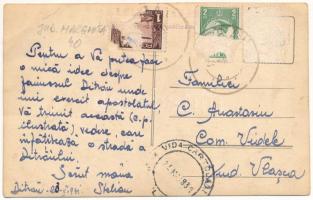 JUD. MARGINEA
40
Pentru a Vă putea face
o mică idee despre
faimosul Ditrău unde
îmi exercit apostolatul
Vă trimit această (c.p.
ilustrată), vedere, care
înfățișează o stradă a
Ditrăului.
Sărut mâna
Stelian
Familiei
C. Anastasiu
Com. Videle
Jud. Vlașca
1
2
VIDA-CARTOJANI